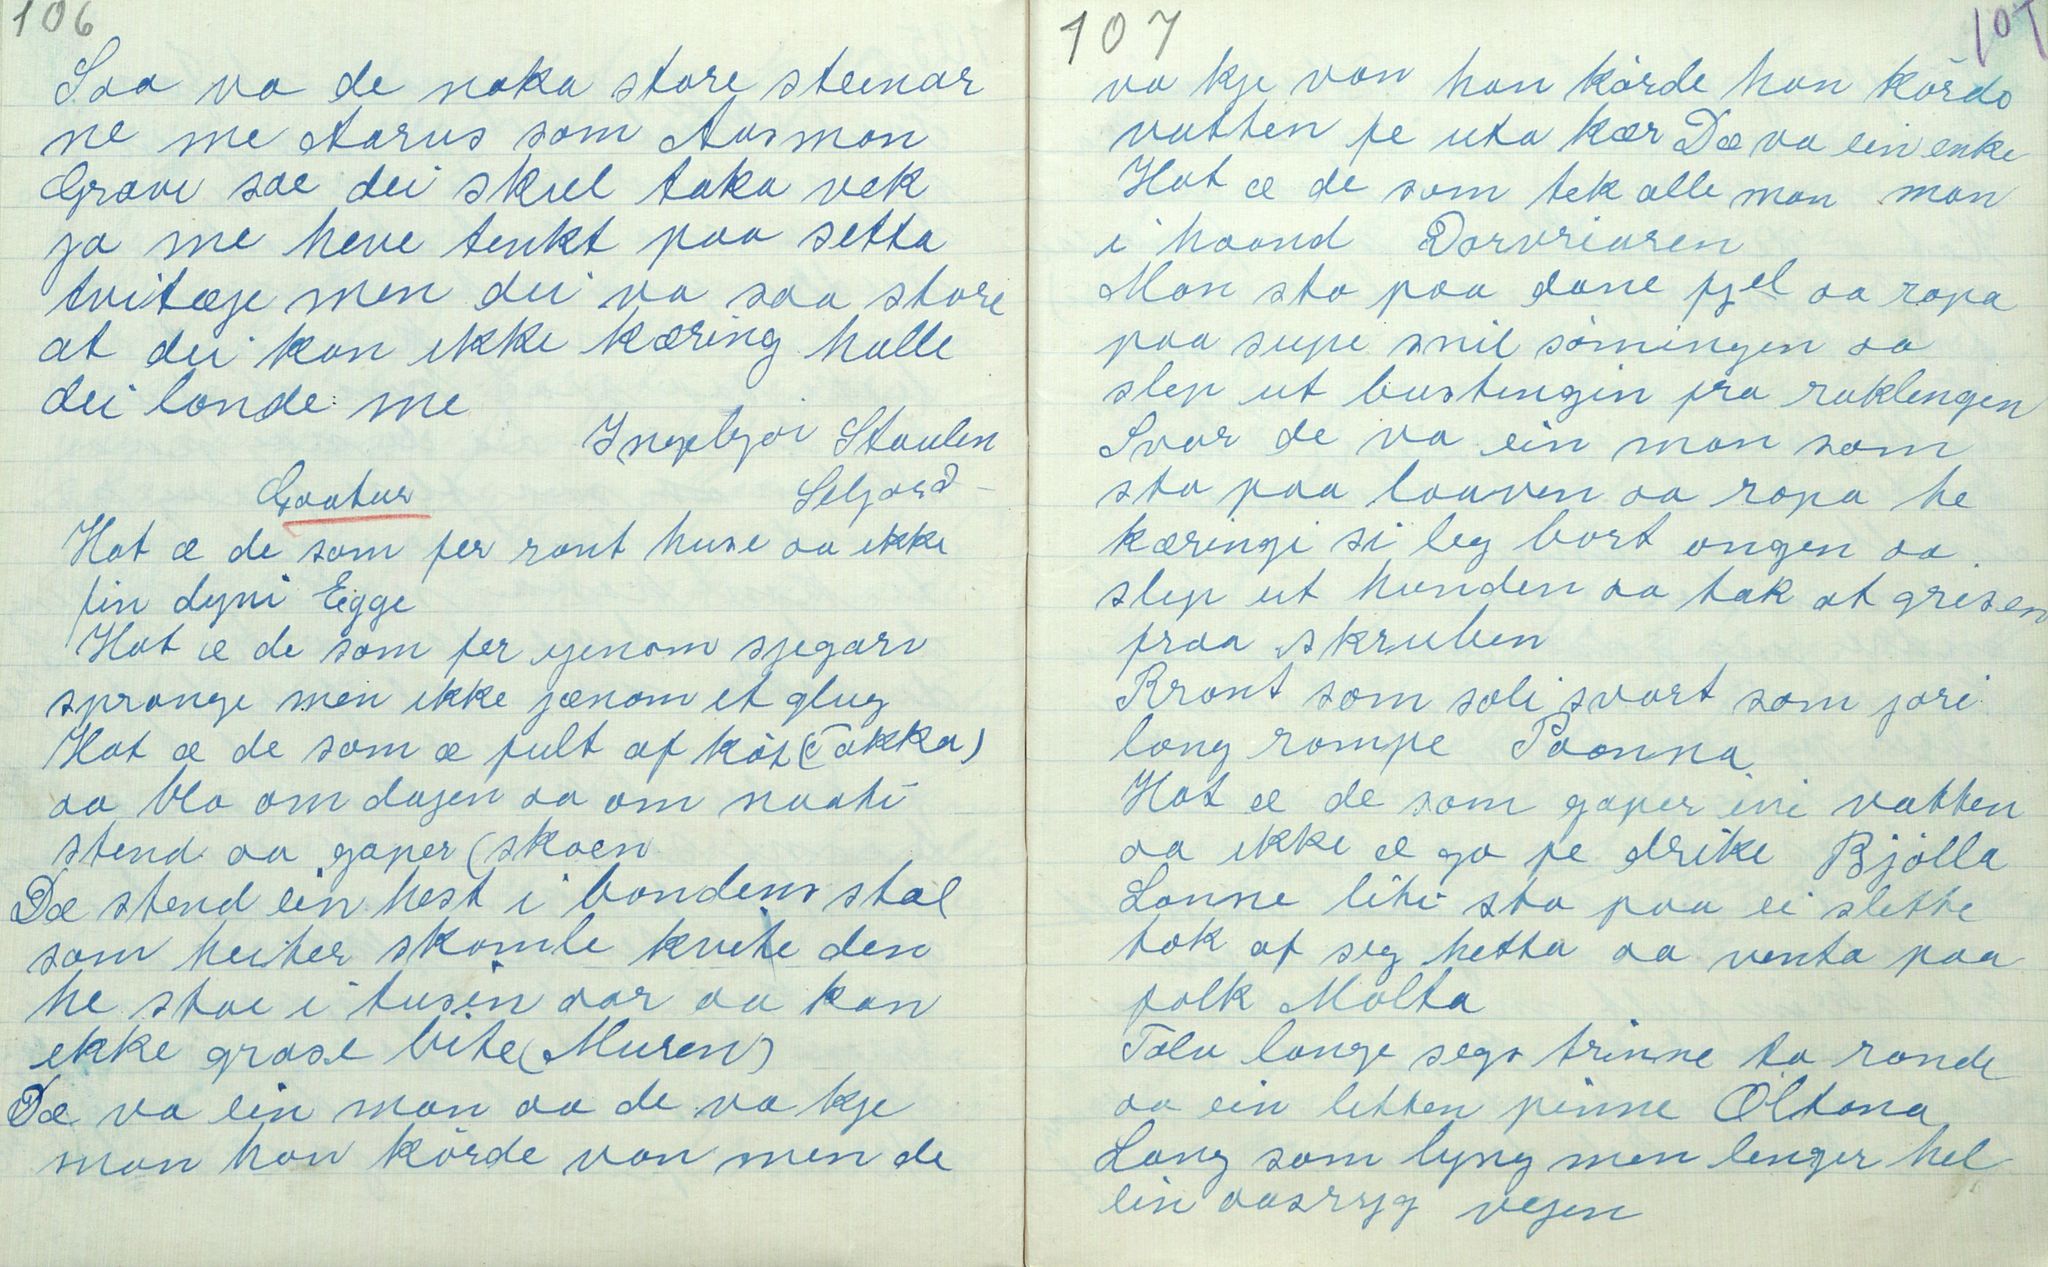 106
Saa va de noka store steinar
ne me Aarus som Aasmon
Grave sae dei skul taka vek
ja me heve tenkt paa setta
tvitæge men dei va saa store
at dei kan ikke kæring halle
dei londe me
Ingebjør Staulen
Seljord
Gaatur
Hot æ de som fer ront huse aa ikke
fin dyni Egge
Hot æ de som fer gjenom sjegars
spronge men ikke jænom et glug
Hot æ de som æ fult af köt (Takka)
aa blo om dagen aa om naati
stend aa gaper (skoen
Dæ stend ein hest i bondens stal
som heiter skomle kvite den
he stae i tusin aar aa kan
ikke grase bite (Muren)
Dæ va ein man aa de va kje
man han körde von men de
107
107
va kje von han körde han körde
vatten fe uta kær Dæ va ein enke
Hot æ de som tek alle man man
i haand Dorvriaren
Man sto paa dane fjel aa ropa
paa supe snil söningen aa
slep ut bustengin fra raklengen
Svar de va ein man som
sto paa laaven aa ropa he
kæringi si leg bort ongen aa
slep ut hunden aa tak at grisen
fraa skruben
Rront som soli svart som jori
long rompe Paanna
Hot æ de som gaper ini vatten
aa ikke æ go fe drike Bjölla
Lonne liti sto paa ei slette
tok af seg hetta aa venta paa
folk Molta
Tolv longe segs trinne ta ronde
aa ein letten pinne Öltona
Long som lyng men lenger hel
ein aasryg vegen